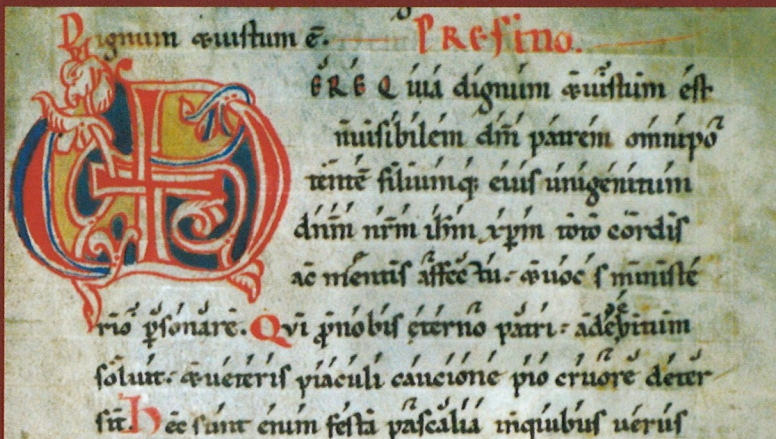 Dignum & iustum ē. PREFATIO.
ERE Quia dignum & iustum est
inuisibilem dm̄ patrem omnipo
tentē filiumq; eius unigenitum
dnm̄ nr̄m ihm̄ xp̄m toto cordis
ac mentis affectu. & uocis ministe
rio p̱sonare. Qui p̄ nobis ęterno patri. adę debitum
soluit. & ueteris piaculi cautionē pio cruore deter
sit. Hęc sunt enim festa pascalia in quibus uerus